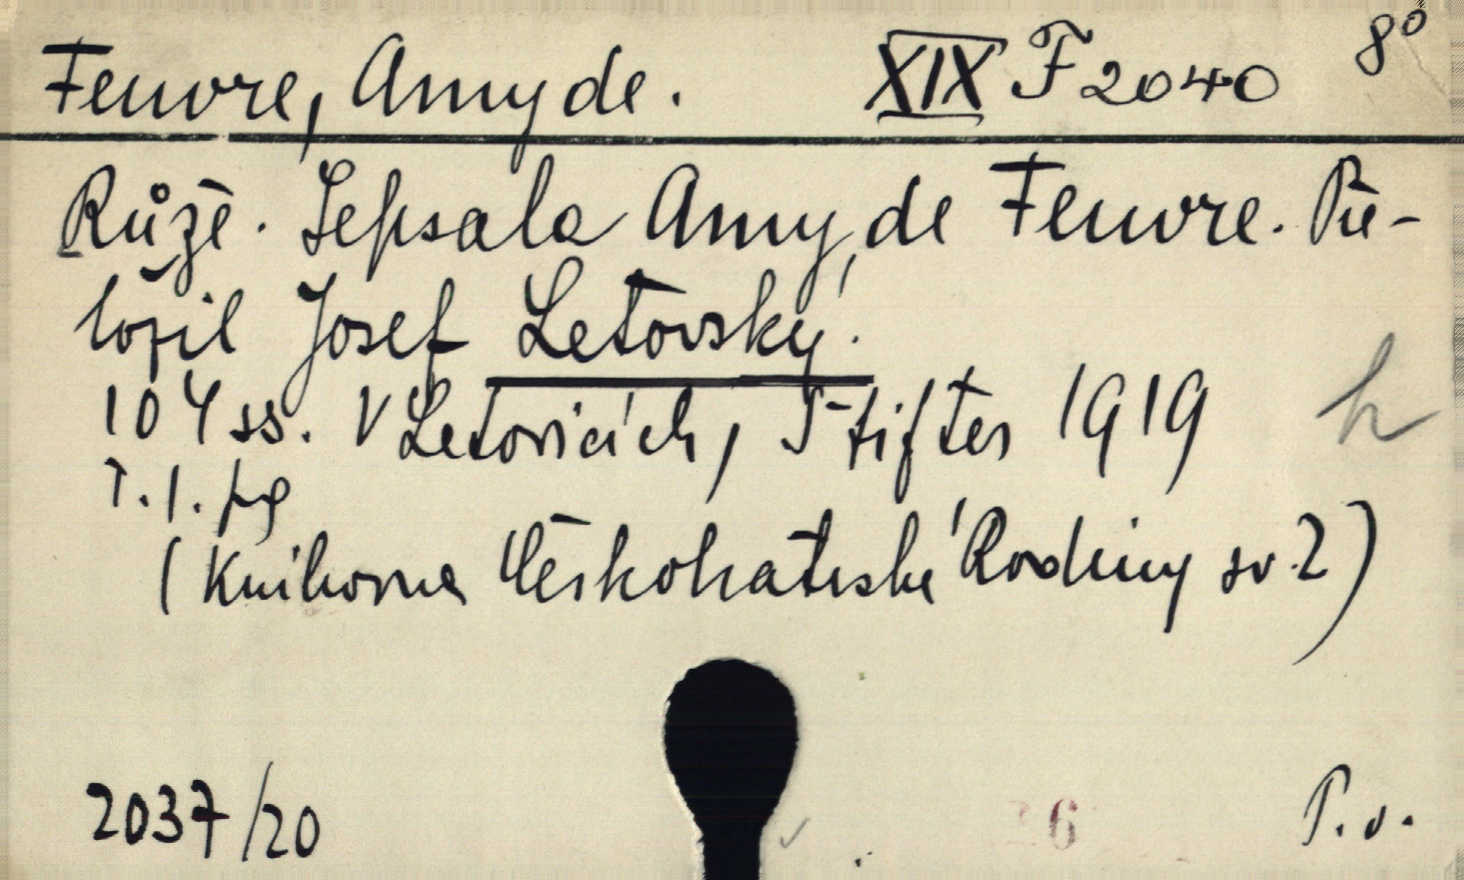 Feuvre, Amy de. XIX F 2040 8°
Růže. Sepsala Amy de Feuvre. Pře-
ložil Josef Letovský.
104 ss. V Letovicích, Stifter 1919
(Knihovna Českobratrské Rodiny sv. 2)
2037/20 6 P. v.